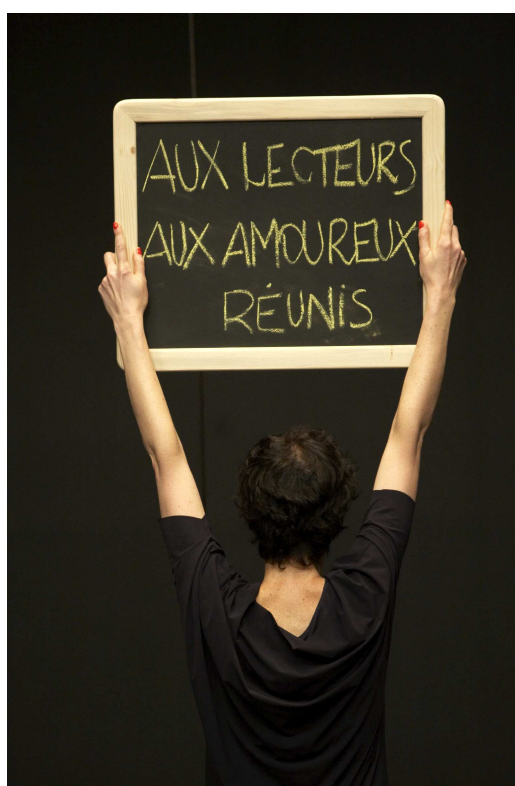 AUX LECTEURS
AUX AMOUREUX
RÉUNIS